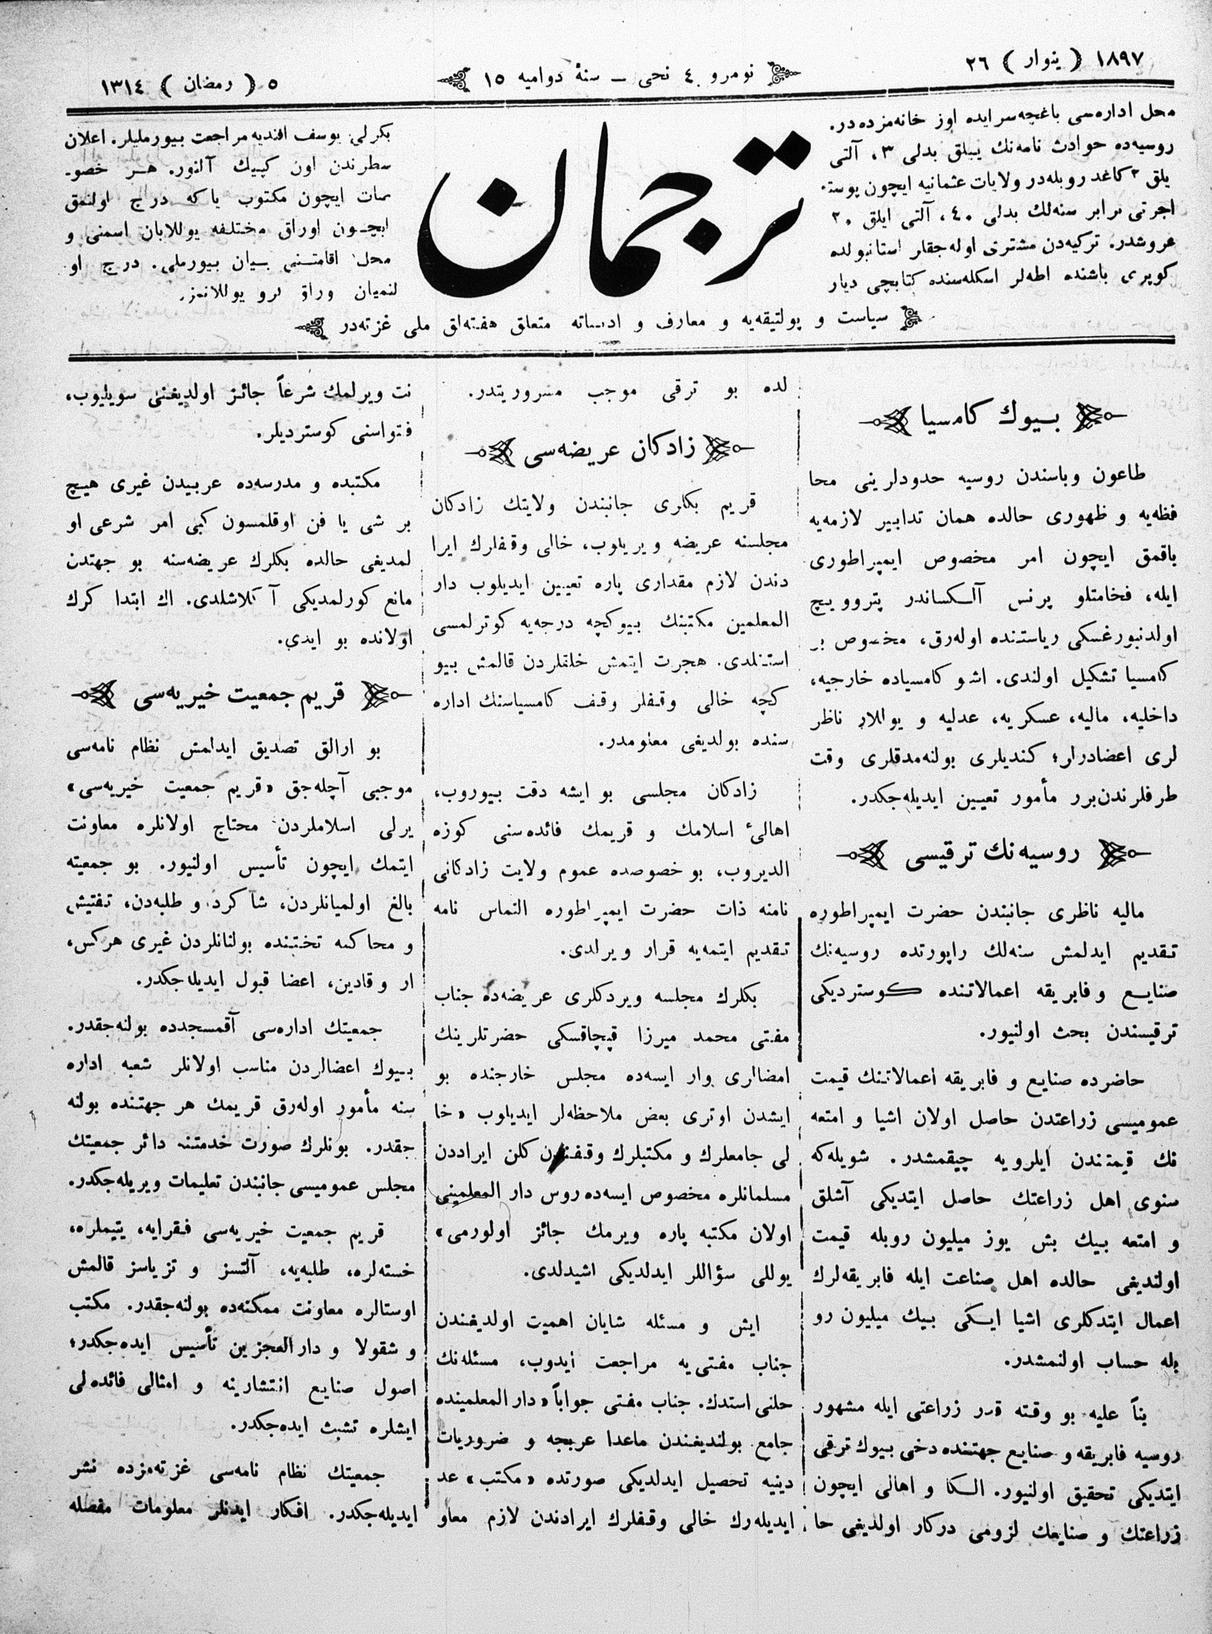 ١٨٩٧ ( ينوار ) ٢٦
نومرو ٤ نجى ــ سنهٔ دواميه ١٥
٥ ( رمضان ) ١٣١٤
محل اداره‌سى باغچه‌سرايده اوز خانه‌مزده‌در.
روسيه‌ده حوادث نامه‌نك ييللق بدلى ٣، آلتى
يلق ٢ كاغد روبله‌در ولايات عثمانيه ايچون پوسته
اجرتى برابر سنه‌لك بدلى ٤٠، آلتى ايلق ٢٠
غروشدر. تركيه‌دن مشترى اوله‌جقلر استانبولده
كوپرى باشنده اطه‌لر اسكله‌سنده كتابچى ديار
ترجمان
بكرلى يوسف افنديه مراجعت بيورمليلر. اعلان
سطرندن اون كپيك آلنور. هر خصو-
صات ايچون مكتوب ياكه درج اولنمق
ايچون اوراق مختلفه يوللايان اسمنى و
محل اقامتنى بيان بيورملى. درج او
لنميان وراق كرو يوللانمز.
سياست و پولتيقه‌يه و معارف و ادبياته متعلق هفته‌لق ملى غزته‌در
بيوك كامسيا
طاعون وباسندن روسيه حدودلرينى محا
فظه‌يه و ظهورى حالده همان تدابير لازمه‌يه
باقمق ايچون امر مخصوص ايمپراطورى
ايله، فخامتلو پرنس آلكساندر پتروويچ
اولدنبورغسكى رياستنده اوله‌رق، مخصوص بر
كامسيا تشكيل اولندى. اشو كامسياده خارجيه،
داخليه، ماليه، عسكريه، عدليه و يوللار ناظر
لرى اعضادرلر؛ كنديلرى بولنه‌مدقلرى وقت
طرفلرندن برر مأمور تعيين ايديله‌جكدر.
روسيه‌نك ترقيسى
ماليه ناظرى جانبندن حضرت ايمپراطوره
تقديم ايدلمش سنه‌لك راپورتده روسيه‌نك
صنايع و فابريقه اعمالاتنده كوسترديكى
ترقيسندن بحث اولنيور.
حاضرده صنايع و فابريقه اعمالاتنك قيمت
عموميسى زراعتدن حاصل اولان اشيا و امتعه
نك قيمتندن ايلرويه چيقمشدر. شويله‌كه
سنوى اهل زراعتك حاصل ايتديكى آشلق
و امتعه بيك بش يوز ميليون روبله قيمت
اولنديغى حالده اهل صناعت ايله فابريقه‌لرك
اعمال ايتدكلرى اشيا ايكى بيك ميليون رو
بله حساب اولنمشدر.
بناً عليه بو وقته قدر زراعتى ايله مشهور
روسيه فابريقه و صنايع جهتنده دخى بيوك ترقى
ايتديكى تحقيق اولنيور. الكا و اهالى ايچون
زراعتك و صنايعك لزومى دركار اولديغى حا
لده بو ترقى موجب مسروريتدر.
زادكان عريضه‌سى
قريم بكلرى جانبندن ولايتك زادكان
مجلسنه عريضه ويريلوب، خالى وقفلرك ايرا
دندن لازم مقدارى پاره تعيين ايديلوب دار
المعلمين مكتبنك بيوكچه درجه‌يه كوترلمسى
استنلدى. هجرت ايتمش خلقلردن قالمش بيو
كچه خالى وقفلر وقف كامسياسنك اداره
سنده بولديغى معلومدر.
زادكان مجلسى بو ايشه دقت بيوروب،
اهالئ اسلامك و قريمك فائده‌سنى كوزه
الديروب، بو خصوصده عموم ولايت زادكانى
نامنه ذات حضرت ايمپراطوره التماس نامه
تقديم ايتمه‌يه قرار ويرلدى.
بكلرك مجلسه ويردكلرى عريضه‌ده جناب
مفتى محمد ميرزا قپچاقسكى حضرتلرينك
امضالرى وار ايسه‌ده مجلس خارجنده بو
ايشدن اوترى بعض ملاحظه‌لر ايديلوب «خا
لى جامعلرك و مكتبلرك وقفندن كلن ايراددن
مسلمانلره مخصوص ايسه‌ده روس دار المعلمينى
اولان مكتبه پاره ويرمك جائز اولورمى»
يوللى سؤاللر ايدلديكى اشيدلدى.
ايش و مسئله شايان اهميت اولديغندن
جناب مفتى‌يه مراجعت ايدوب، مسئله‌نك
حلنى استدك. جناب مفتى جواباً «دار المعلمينده
جامع بولنديغندن ماعدا عربجه و ضروريات
دينيه تحصيل ايدلديكى صورتده «مكتب» عد
ايديله‌رك خالى وقفلرك ايرادندن لازم معاو
نت ويرلمك شرعاً جائز اولديغنى سويليوب،
فتواسنى كوسترديلر.
مكتبده و مدرسه‌ده عربيدن غيرى هيچ
بر شى يا فن اوقلمسون كبى امر شرعى او
لمديغى حالده بكلرك عريضه‌سنه بو جهتدن
مانع كورلمديكى آكلاشلدى. اك ابتدا كرك
اولانده بو ايدى.
قريم جمعيت خيريه‌سى
بو ارالق تصديق ايدلمش نظام نامه‌سى
موجبى آچله‌جق «قريم جمعيت خيريه‌سى»
يرلى اسلاملردن محتاج اولانلره معاونت
ايتمك ايچون تأسيس اولنيور. بو جمعيته
بالغ اولميانلردن، شاكرد و طلبه‌دن، تفتيش
و محاكمه تختنده بولنانلردن غيرى هركس،
ار و قادين، اعضا قبول ايديله‌جكدر.
جمعيتك اداره‌سى آقمسجدده بولنه‌جقدر.
بيوك اعضالردن مناسب اولانلر شعبه اداره
سنه مأمور اوله‌رق قريمك هر جهتنده بولنه
جقدر. بونلرك صورت خدمتنه دائر جمعيتك
مجلس عموميسى جانبندن تعليمات ويريله‌جكدر.
قريم جمعيت خيريه‌سى فقرايه، يتيملره،
خسته‌لره، طلبه‌يه، آلتسز و تزياسز قالمش
اوستالره معاونت ممكنه‌ده بولنه‌جقدر. مكتب
و شقولا و دار العجزين تأسيس ايده‌جكدر؛
اصول صنايع انتشارينه و امثالى فائده‌لى
ايشلره تشبث ايده‌جكدر.
جمعيتك نظام نامه‌سى غزته‌مزده نشر
ايديله‌جكدر. افكار ايدنلر معلومات مفصله